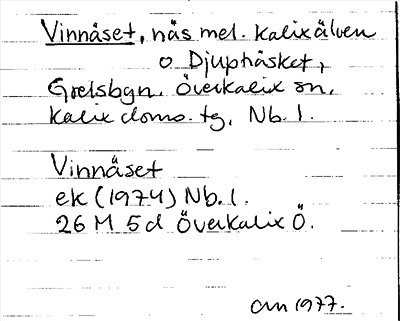 Vinnäset, näs mel. Kalixälven
o. Djuphäsket,
Grelsbgn. Överkalix sn,
Kalix doms. tg, Nb. l.
Vinnäset
ek (1974) Nb. l.
26 M 5 d Överkalix Ö.
am 1977.